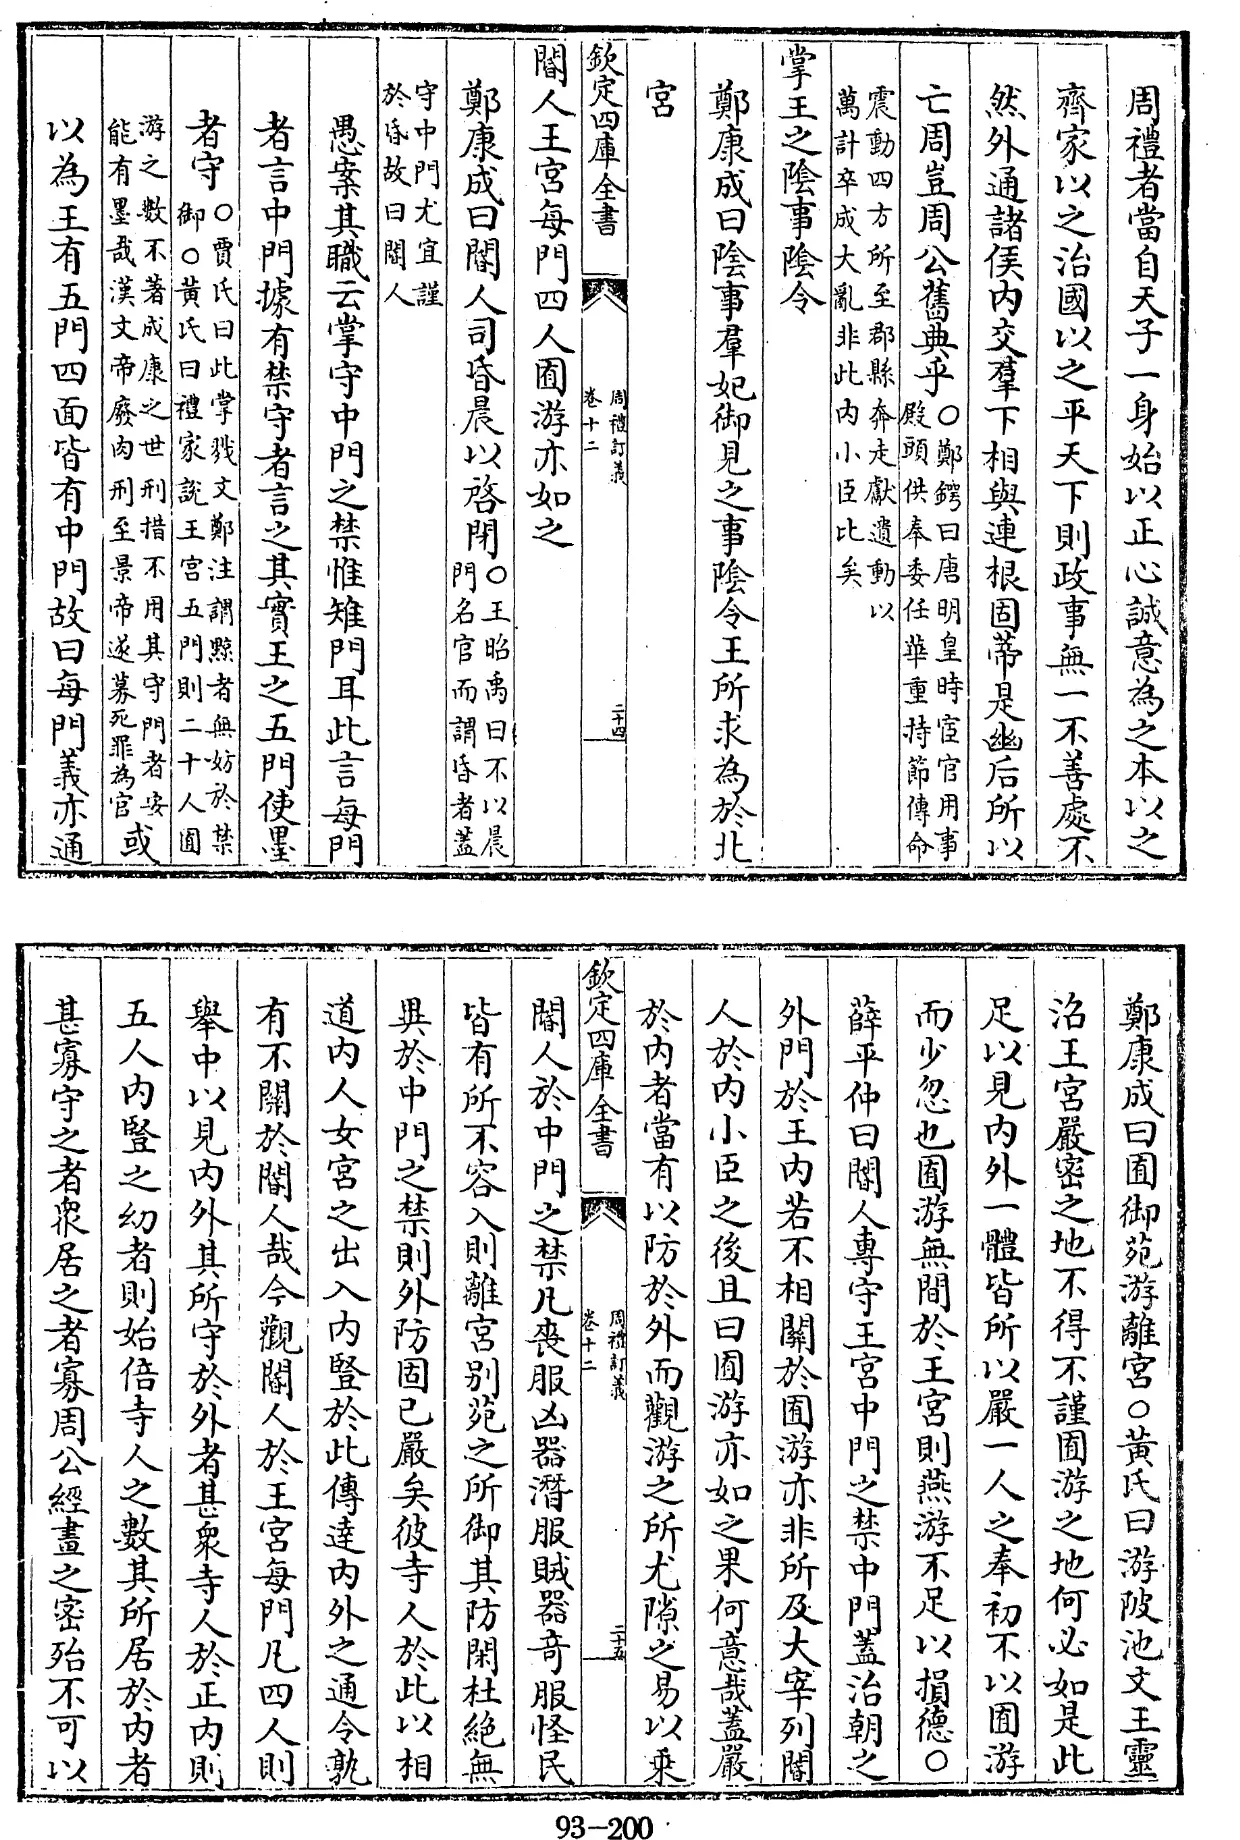 周禮者當自天子一身始以正心誠意為之本以之
齊家以之治國以之平天下則政事無一不善處不
然外通諸侯内交羣下相與連根固蔕是幽后所以
亡周豈周公舊典乎○鄭鍔曰唐明皇時宦官用事
殿頭供奉委任華重持節傳命
震動四方所至郡縣奔走獻遺動以
萬計卒成大亂非此内小臣比矣
掌王之陰事陰令
鄭康成曰陰事羣妃御見之事陰令王所求為於北
宫
欽定四庫全書
周禮訂義
卷十二
二十四
閽人王宫每門四人囿游亦如之
鄭康成曰閽人司昏晨以啓閉○王昭禹曰不以晨
門名官而謂昏者蓋
守中門尤宜謹
於昏故曰閽人
愚案其職云掌守中門之禁惟雉門耳此言每門
者言中門據有禁守者言之其實王之五門使墨
者守○賈氏曰此掌戮文鄭注謂黥者無妨於禁
御○黄氏曰禮家說王宫五門則二十人囿
游之數不著成康之世刑措不用其守門者安
能有墨哉漢文帝廢肉刑至景帝遂募死罪為官
或
以為王有五門四面皆有中門故曰每門義亦通
鄭康成曰囿御苑游離宫○黄氏曰游陂池文王靈
沼王宫嚴密之地不得不謹囿游之地何必如是此
足以見内外一體皆所以嚴一人之奉初不以囿游
而少忽也囿游無間於王宫則燕游不足以損德○
薛平仲曰閽人專守王宫中門之禁中門蓋治朝之
外門於王内若不相關於囿游亦非所及大宰列閽
人於内小臣之後且曰囿游亦如之果何意哉蓋嚴
於内者當有以防於外而觀游之所尤隙之易以乘
欽定四庫全書
周禮訂義
卷十二
二十五
閽人於中門之禁凡喪服凶器潛服賊器奇服怪民
皆有所不容入則離宫别苑之所御其防閑杜絶無
異於中門之禁則外防固已嚴矣彼寺人於此以相
道内人女宫之出入内豎於此傳達内外之通令孰
有不關於閽人哉今觀閽人於王宫每門凡四人則
舉中以見内外其所守於外者甚衆寺人於正内則
五人内豎之幼者則始倍寺人之數其所居於内者
甚寡守之者衆居之者寡周公經畫之密殆不可以
93-200